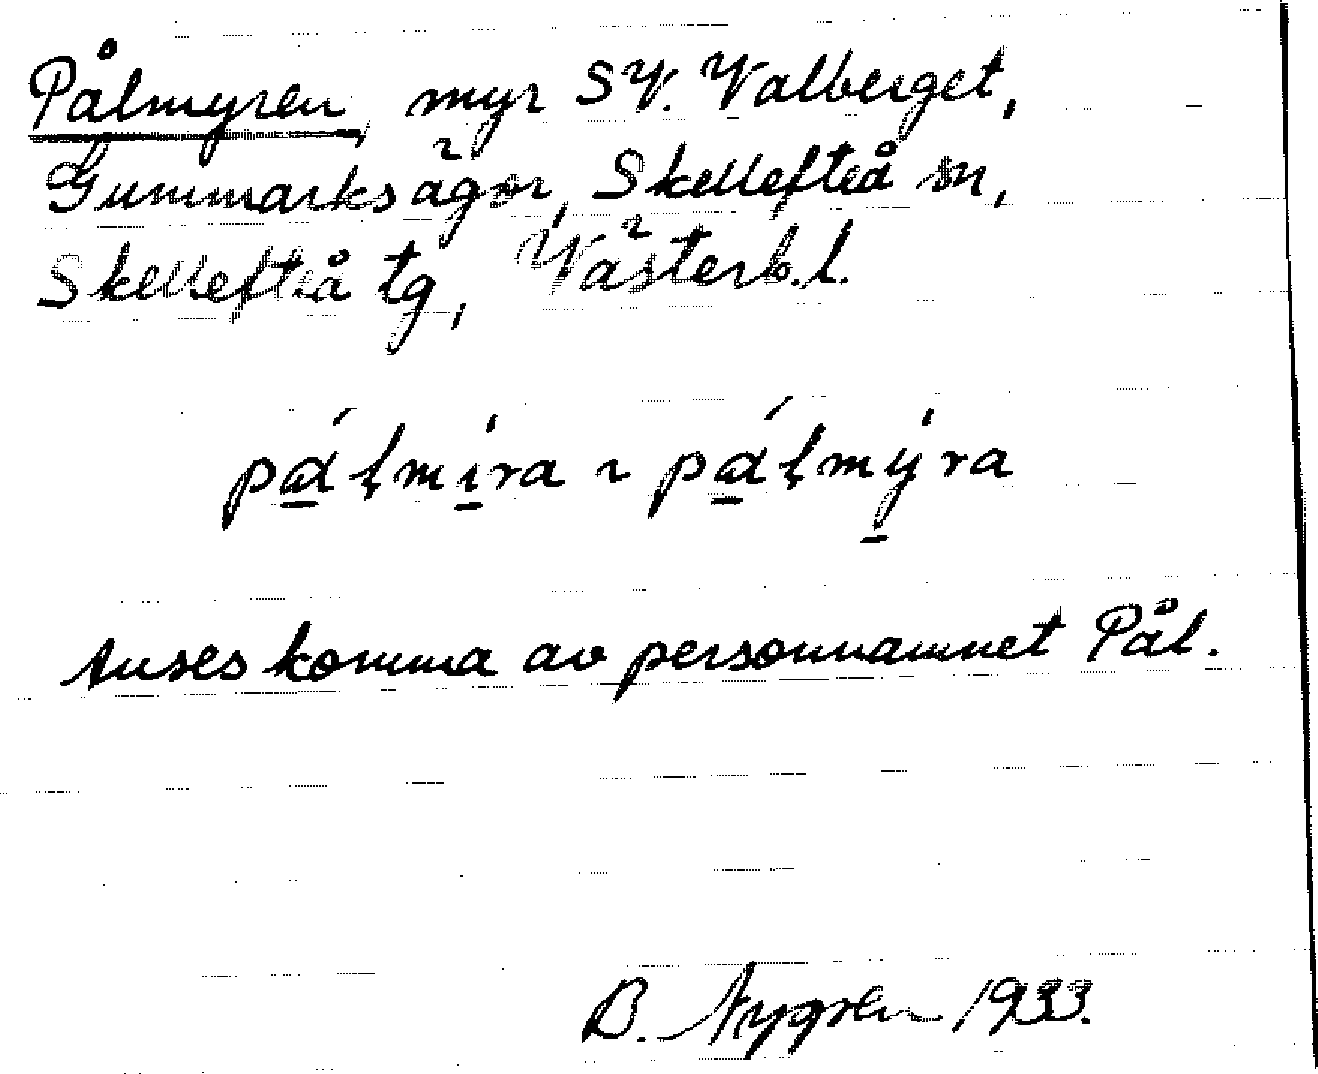 Pålmyren, myr SV. Valberget,
Gummarks ägor, Skellefteå sn,
Skellefteå tg, Västerb.l.
pálmíra ~ pálmýra
Anses komma av personnamnet Pål.
B. Nygren 1933.